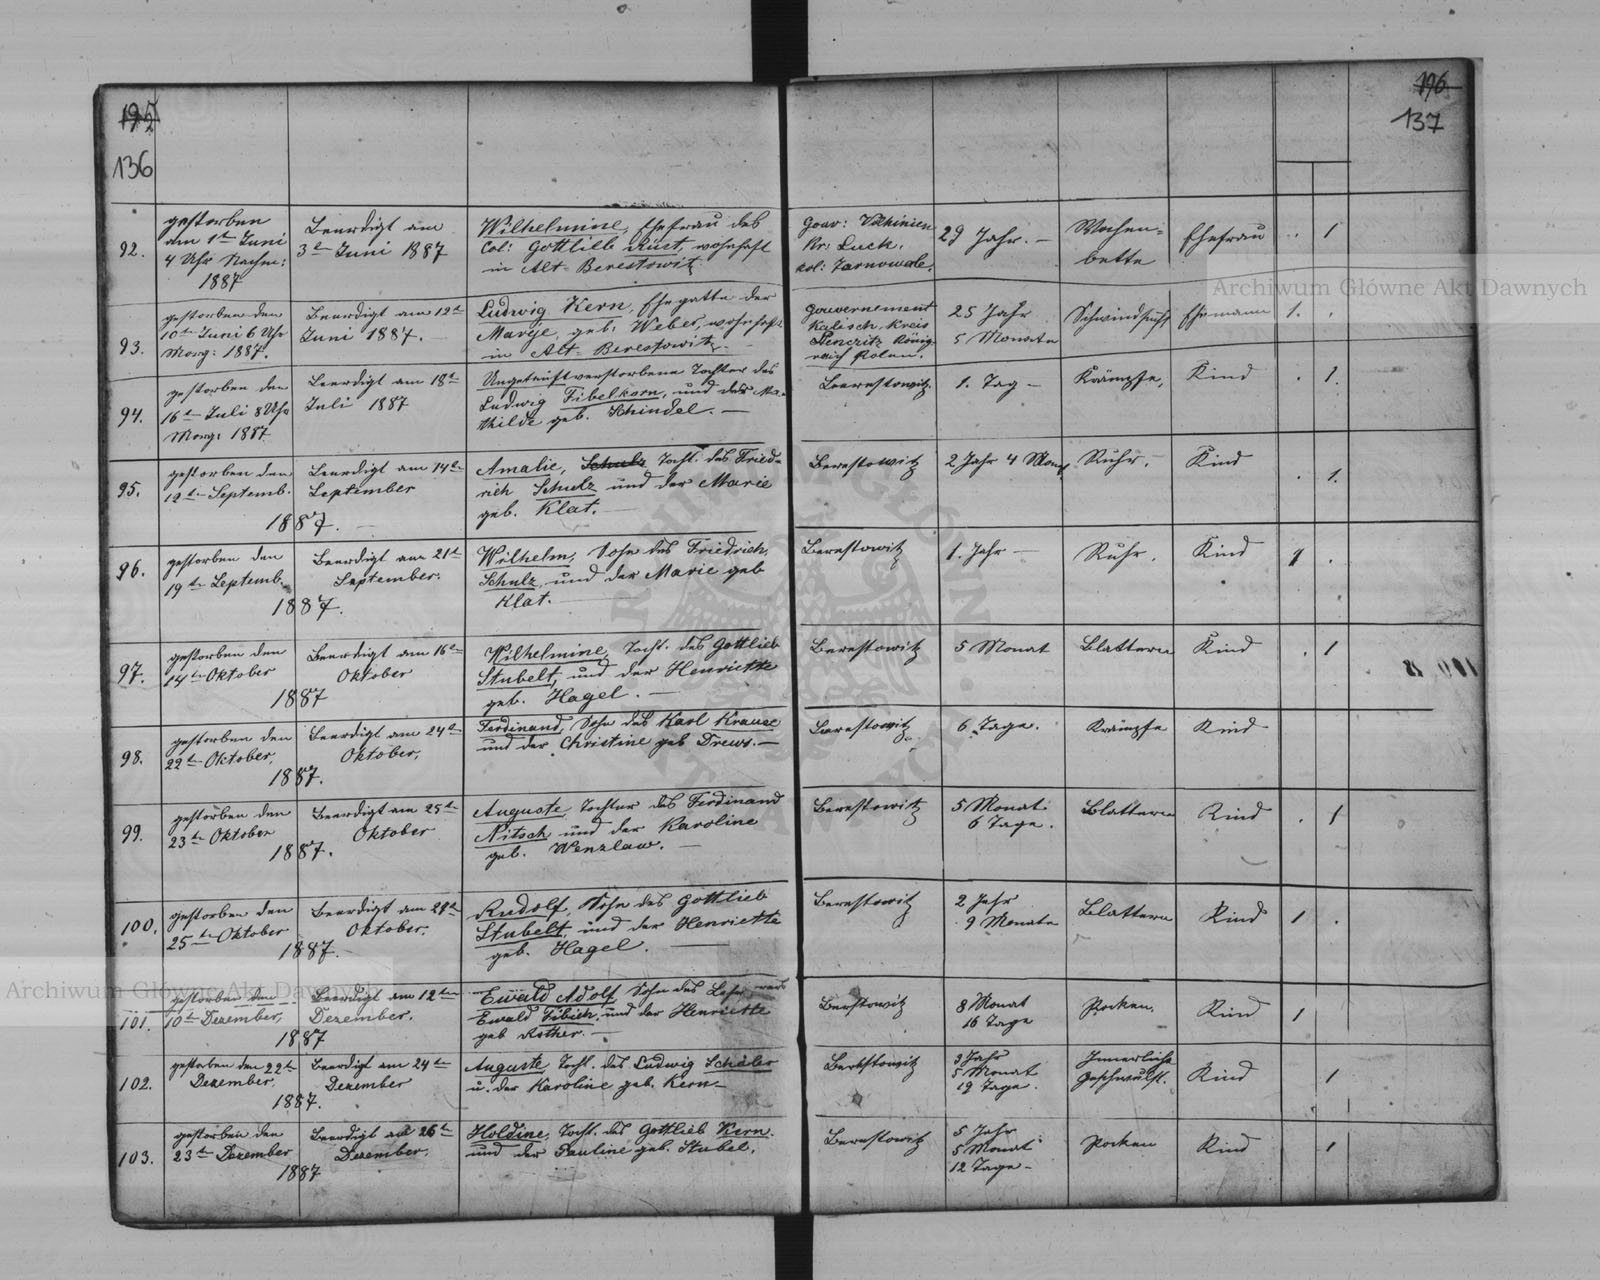 195
136
196
137
92.
gestorben
am 1ten Juni
4 Uhr Nachm:
1887
Beerdigt am
3ten Juni 1887
Wilhelmine, Ehefrau des
Col: Gottlieb Rüst, wohnhaft
in Alt-Berestowitz
Gouv: Volhinien
Kr: Luck.
Kol: Tarnowole.
29 Jahr. —
Wochen=
bette
Ehefrau
. . 1
93.
gestorben den
10ten Juni 6 Uhr
Morg: 1887.
Beerdigt am 12ten
Juni 1887. —
Ludwig Kern, Ehegatte der
Marije, geb: Weber, wohnhaft
in Alt-Berestowitz. —
Gouvernement
Kalisch. Kreis
Lenczitz König
reich Polen.
25 Jahr
5 Monate
Schwindsucht
Ehemann
1. .
94.
gestorben den
16ten Juli 8 Uhr
Morg: 1887
Beerdigt am 18ten
Juli 1887
Ungetauft verstorbene Tochter des
Ludwig Fibelkorn, und der Ma-
thilde geb. Schindel. —
Beerestowitz
1. Tag —
Krämpfe,
Kind
. 1.
95.
gestorben den
12ten Septemb.
1887. —
Beerdigt am 14ten
September
Amalie, Schulz Tocht. des Fried-
rich Schulz und der Marie
geb. Klat. —
Berestowitz
2 Jahr 4 Mon
Ruhr.
Kind
. 1.
96.
gestorben den
19ten Septemb.
1887.
Beerdigt am 21ten
September.
Wilhelm, Sohn des Friedrich
Schulz und der Marie geb
Klat. —
Berestowitz
1. Jahr —
Ruhr.
Kind
1 .
97.
gestorben den
14ten Oktober
1887
Beerdigt am 16ten
Oktober
Wilhelmine, Tocht. des Gottlieb
Stubelt, und der Henriette
geb. Hagel. —
Berestowitz
5 Monat
Blattern
Kind
. 1
98.
gestorben den
22ten Oktober,
1887.
Beerdigt am 24ten
Oktober,
Ferdinand, Sohn des Karl Krause
und der Christine geb Drews. —
Berestowitz
6 Tage.
Krämpfe
Kind
99.
gestorben den
23ten Oktober
1887.
Beerdigt am 25ten
Oktober
Auguste, Tochter des Ferdinand
Nitsch und der Karoline
geb. Wenzlaw. —
Berestowitz
5 Monat
6 Tage.
Blattern
Kind
. 1
100.
gestorben den
25ten Oktober
1887.
Beerdigt am
Oktober.
Rudolf, Sohn des Gottlieb
Stubelt, und der Henriette
geb. Hagel. —
Berestowitz
2 Jahr
9 Monate
Blattern
Kind
1 .
101.
gestorben den
10ten Dezember,
1887
Beerdigt am 12ten
Dezember.
Ewald Adolf Sohn des
Ewald Fibich, und der Henriette
geb Rother. —
Berstowitz
8 Monat
16 Tage
Pocken.
Kind
1
102.
gestorben den 22ten
Dezember,
1887.
Beerdigt am 24ten
Dezember
Auguste Tocht. des Ludwig Schäler
u. der Karoline geb. Kern —
Berestowitz
3 Jahr
5 Monat
19 Tage.
Innerliche
Geschwulst.
Kind
1
103.
gestorben den
23ten Dezember
1887
Beerdigt am 26ten
Dezember.
Holdine, Tocht. des Gottlieb Kern.
und der Pauline geb. Stubel.
Berestowitz
5 Jahr
5 Monat
12 Tage —
Pocken
Kind
1
Archiwum Główne Akt Dawnych
Archiwum Główne Akt Dawnych